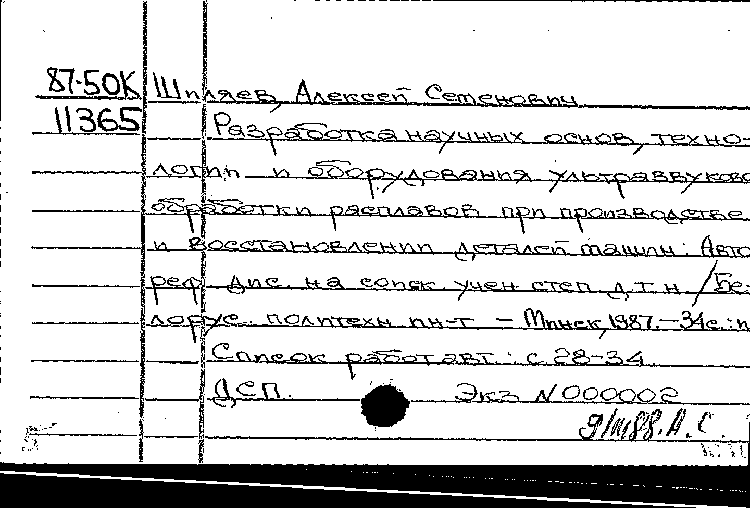 87-50К Шиляев, Алексей Семенович
11365 Разработка научных основ, техно-
логии и оборудования ультразвуково
обработки расплавов при производстве
и восстановлении деталей машин: Авто
реф. дис. на соиск. учен. степ. д.т.н. / Бе-
лорус. политехн. ин-т. - Минск, 1987. - 34с.: и
Список работ авт.: с.28-34.
ДСП. Экз. N 000002
9/III 88. А.С.